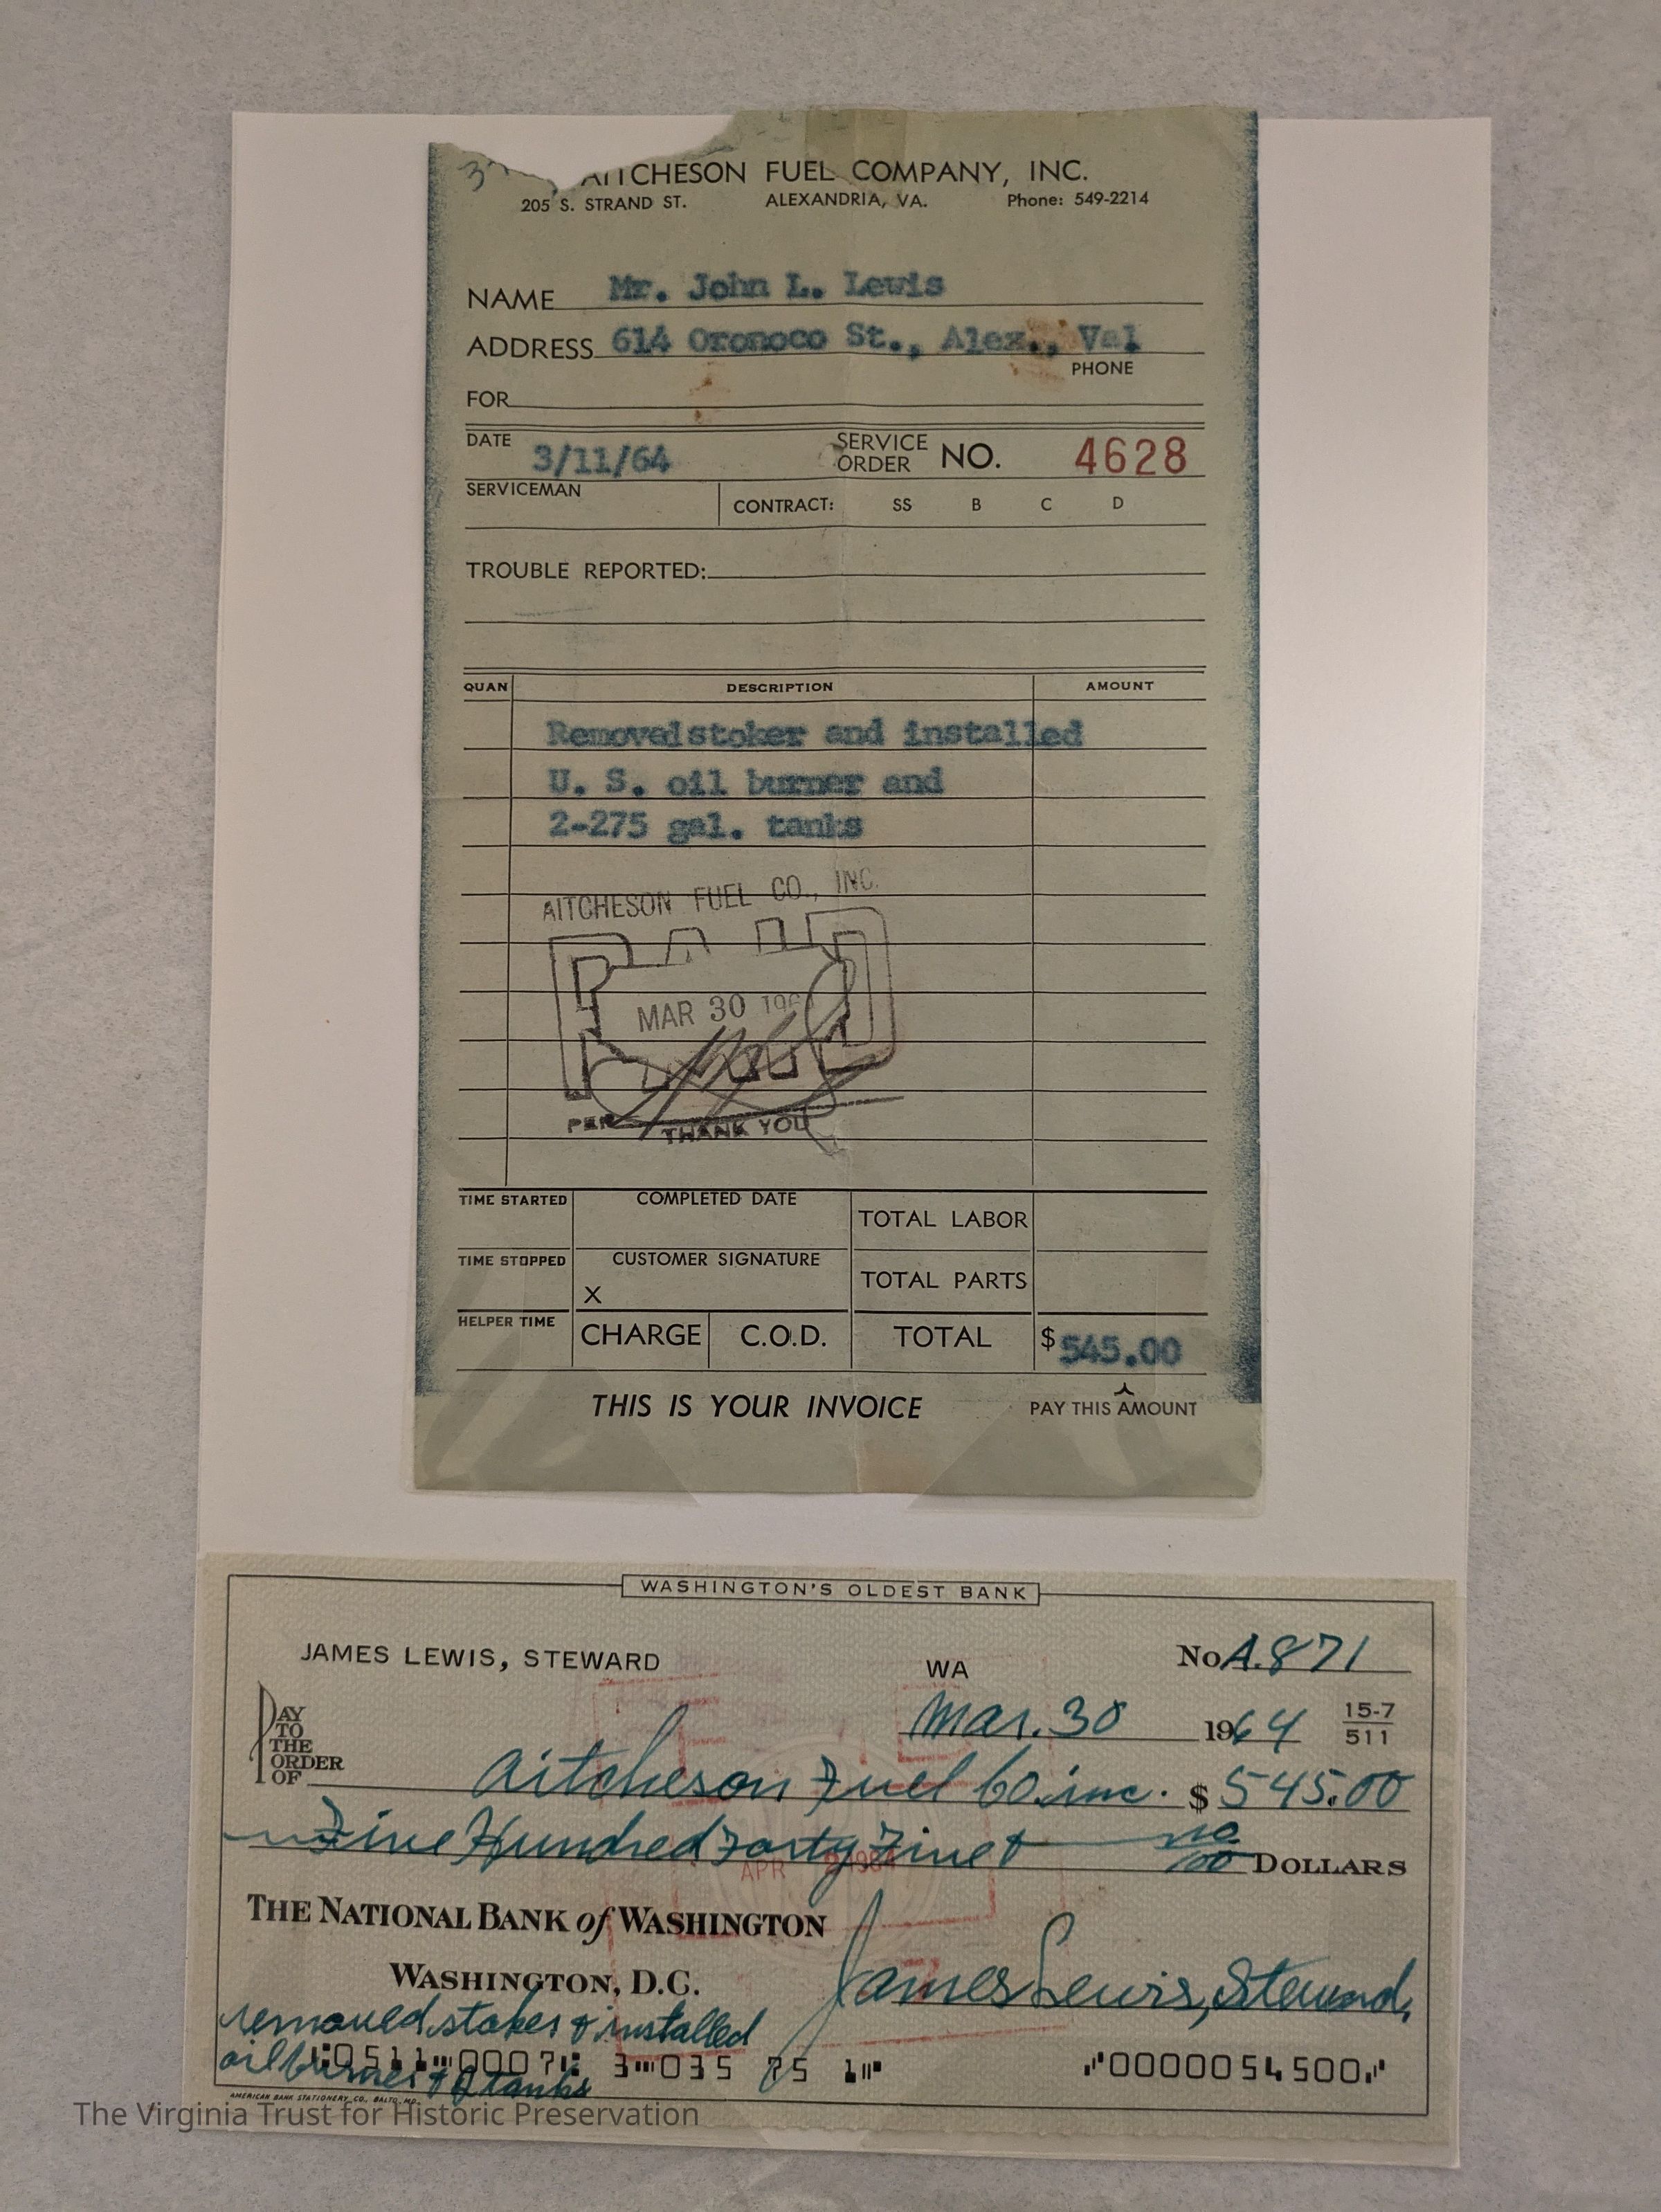 AITCHESON FUEL COMPANY, INC.
205 S. STRAND ST. ALEXANDRIA, VA. Phone: 549-2214
NAME Mr. John L. Lewis
ADDRESS 614 Oronoco St., Alex., Val
PHONE
FOR
DATE 3/11/64 SERVICE ORDER NO. 4628
SERVICEMAN CONTRACT: SS B C D
TROUBLE REPORTED:
QUAN DESCRIPTION AMOUNT
Removed stoker and installed
U. S. oil burner and
2-275 gal. tanks
AITCHESON FUEL CO., INC.
PAID
MAR 30 196
PER
THANK YOU
TIME STARTED COMPLETED DATE TOTAL LABOR
TIME STOPPED CUSTOMER SIGNATURE TOTAL PARTS
X
HELPER TIME CHARGE C.O.D. TOTAL $545.00
THIS IS YOUR INVOICE PAY THIS AMOUNT
WASHINGTON'S OLDEST BANK
JAMES LEWIS, STEWARD WA No A.871
Mar. 30 1964 15-7
511
PAY TO THE ORDER OF Aitcheson Fuel Co. inc. $545.00
Five Hundred Forty Five & no/00 DOLLARS
APR 1964
THE NATIONAL BANK of WASHINGTON
WASHINGTON, D.C. James Lewis, Steward,
removed stoker & installed
oil burner & 2 tanks
0511 0007 3 035 75 1 0000054500
AMERICAN BANK STATIONERY CO. BALTO. MD.
The Virginia Trust for Historic Preservation